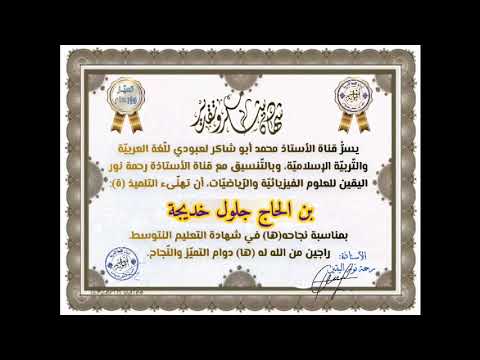 شهادة شكر وتقدير
يسرُّ قناة الأستاذ محمد أبو شاكر لعبودي للّغة العربيّة
والتّربيّة الإسلاميّة، وبالتّنسيق مع قناة الأستاذة رحمة نور
اليقين للعلوم الفيزيائيّة والرّياضيّات، أن تهنّىء التلميذ (ة):
بن الحاج جلول خديجة
بمناسبة نجاحه(ها) في شهادة التعليم المتوسط
راجين من الله له (ها) دوام التميّز والنّجاح.
الأستاذة:
رحمة نور اليقين